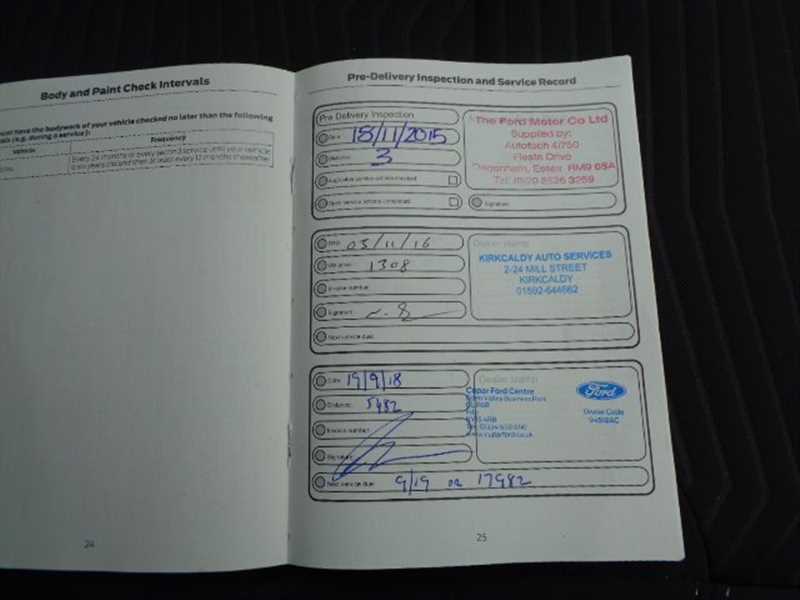 Body and Paint Check Intervals
must have the bodywork of your vehicle checked no later than the following
(e.g. during a service):
Vehicle
Frequency
Every 24 months or every second service until your vehicle
is six years old and then at least every 12 months thereafter
24
Pre-Delivery Inspection and Service Record
Pre Delivery Inspection
Date 18/11/2015
Distance 3
The Ford Motor Co Ltd
Supplied by:
Autotech 4/750
Fiesta Drive
Dagenham, Essex RM9 6SA
Signature
Date 03/11/16
Distance 1308
Invoice number
Signature
Next service due
Dealer stamp
KIRKCALDY AUTO SERVICES
2-24 MILL STREET
KIRKCALDY
01592-644662
Date 19/9/18
Distance 5482
Invoice number
Signature
Next service due 9/19 or 17982
Dealer stamp
Cupar Ford Centre
Ford
Dealer Code
25